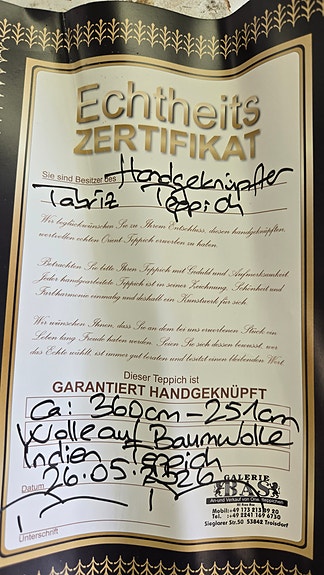 Echtheits
ZERTIFIKAT
Sie sind Besitzer des Handgeknüpfter
Tabriz Teppich
Wir beglückwünschen Sie zu Ihrem Entschluss, diesen handgeknüpften,
wertvollen echten Orient Teppich erworben zu haben.
Betrachten Sie bitte Ihren Teppich mit Geduld und Aufmerksamkeit
Jeder handgearbeitete Teppich ist in seiner Zeichnung, Schönheit und
Farbharmonie einmalig und deshalb ein Kunstwerk für sich.
Wir wünschen Ihnen, dass Sie an dem bei uns erworbenen Stück ein
Leben lang Freude haben werden. Seien Sie sich dessen bewusst, wer
das Echte wählt, ist immer gut beraten und besitzt einen bleibenden Wert.
Dieser Teppich ist
GARANTIERT HANDGEKNÜPFT
Ca: 360cm - 251cm
Wolle auf Baumwolle
Indien Teppich
Datum 26.05.2026
GALERIE
BAS
An- und Verkauf von Orient Teppichen
Mobil: +49 173 213 89 20
Tel.: +49 2241 169 6730
Sieglarer Str.50 53842 Troisdorf
Unterschrift